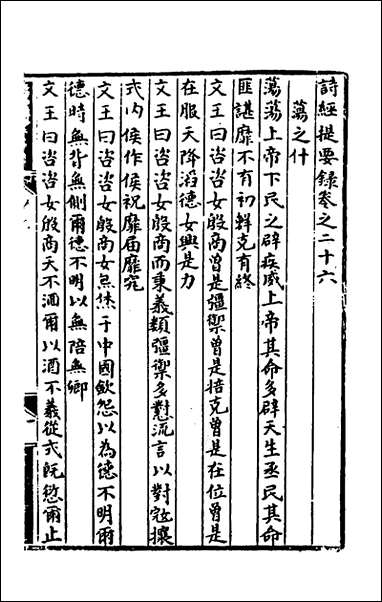 詩經提要錄卷之二十六
蕩之什
蕩蕩上帝下民之辟疾威上帝其命多辟天生烝民其命
匪諶靡不有初鮮克有終
文王曰咨咨女殷商曾是彊禦曾是掊克曾是在位曾是
在服天降滔德女興是力
文王曰咨咨女殷商而秉義類彊禦多懟流言以對寇攘
式內侯作侯祝靡屆靡究
文王曰咨咨女殷商女炰烋于中國斂怨以為德不明爾
德時無背無側爾德不明以無陪無卿
文王曰咨咨女殷商天不湎爾以酒不義從式既愆爾止